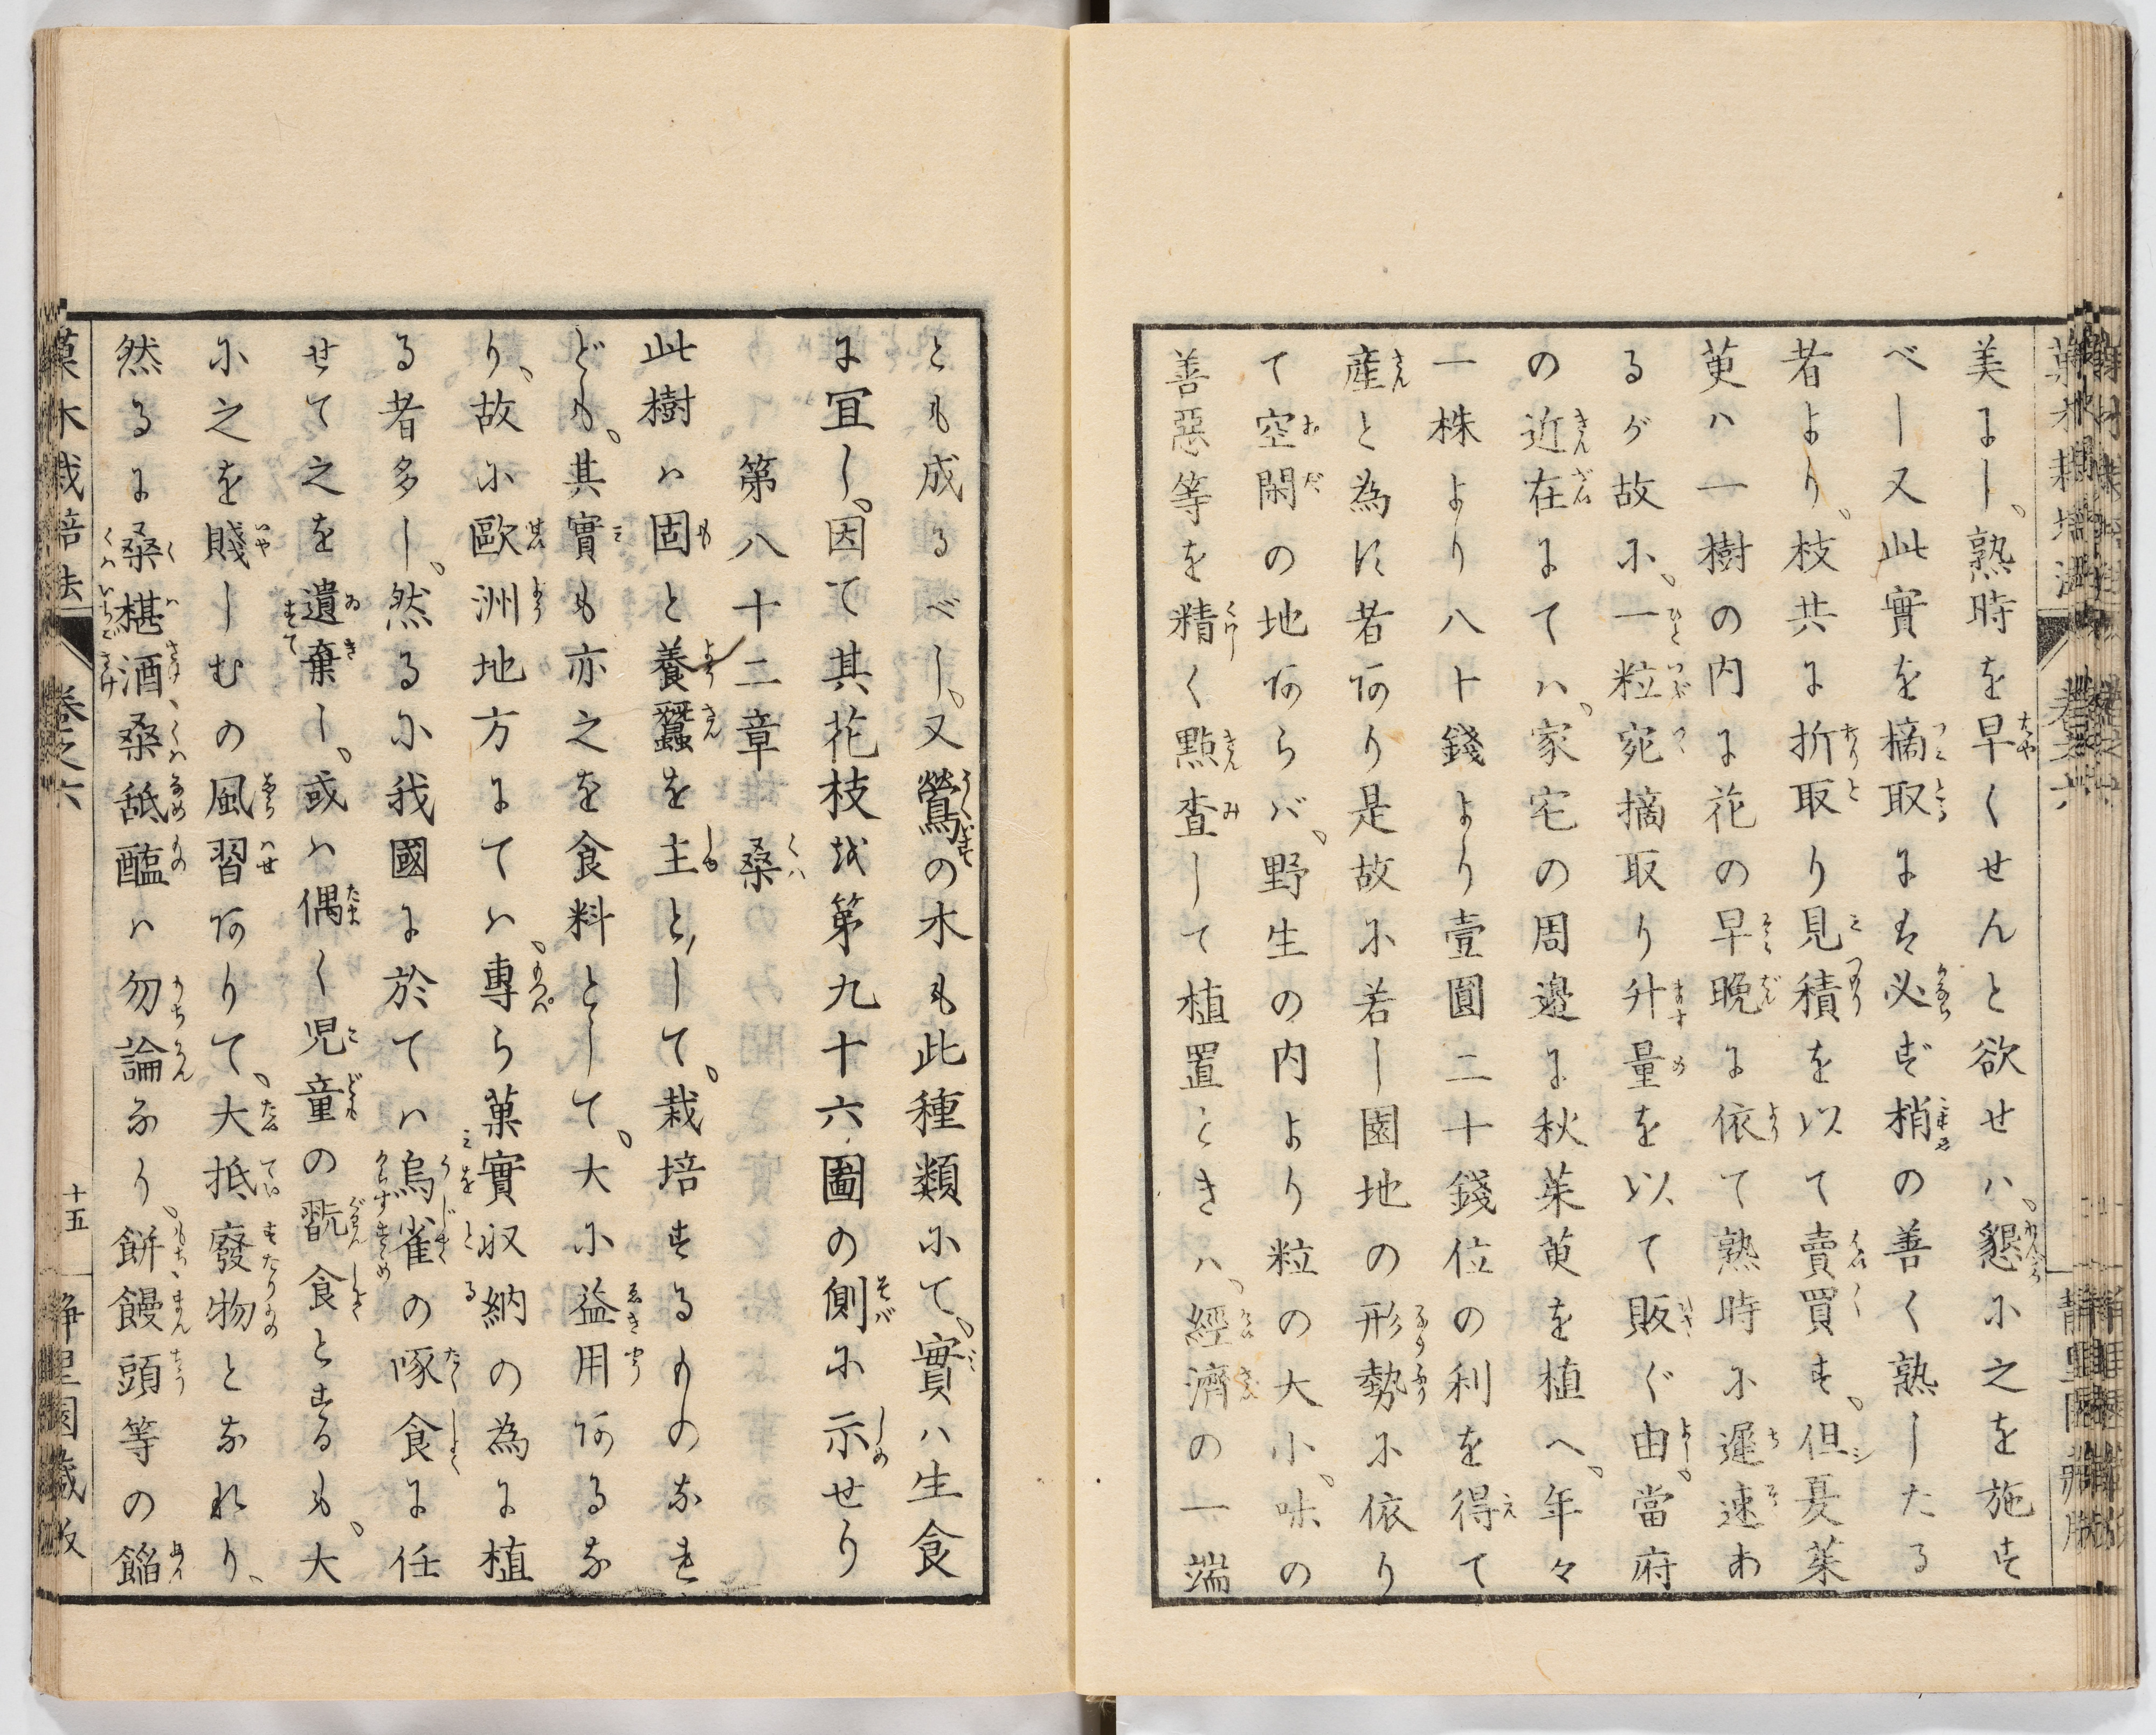 美よし、熟時を早くせんと欲せハ、懇に之を施す
べし又此實を摘取よは必ず梢の善く熟したる
者より、枝共よ折取り見積を以て賣買す、但夏茱
萸ハ一樹の内よ花の早晩よ依て熟時に遲速あ
るが故に、一粒宛摘取り升量を以て販ぐ由、當府
の近在よてハ、家宅の周邊よ秋茱萸を植へ、年々
一株より八十錢より壹圓二十錢位の利を得て
産と為に者あり是故に若し園地の形勢に依り
て空閑の地あらバ、野生の内より粒の大小、味の
善惡等を精く點査して植置ときハ、經濟の一端
とも成るべし、又鶯の木も此種類にて、實ハ生食
よ宜し、因て其花枝を第九十六圖の側に示せり
第八十二章 桑
此樹ハ固と養蠶を主として、栽培するものなれ
ども、其實も亦之を食料として、大に益用あるな
り、故に歐洲地方よてハ、專ら菓實収納の為よ植
る者多し、然るに我國よ於てハ烏雀の啄食よ任
せて之を遺棄し、或ハ偶く児童の翫食とするも、大
に之を賤しむの風習ありて、大抵廢物となれり、
然るよ桑椹酒桑舐醢ハ勿論なり、餅饅頭等の餡
菓木栽培法 卷之六 十五 静里園藏版